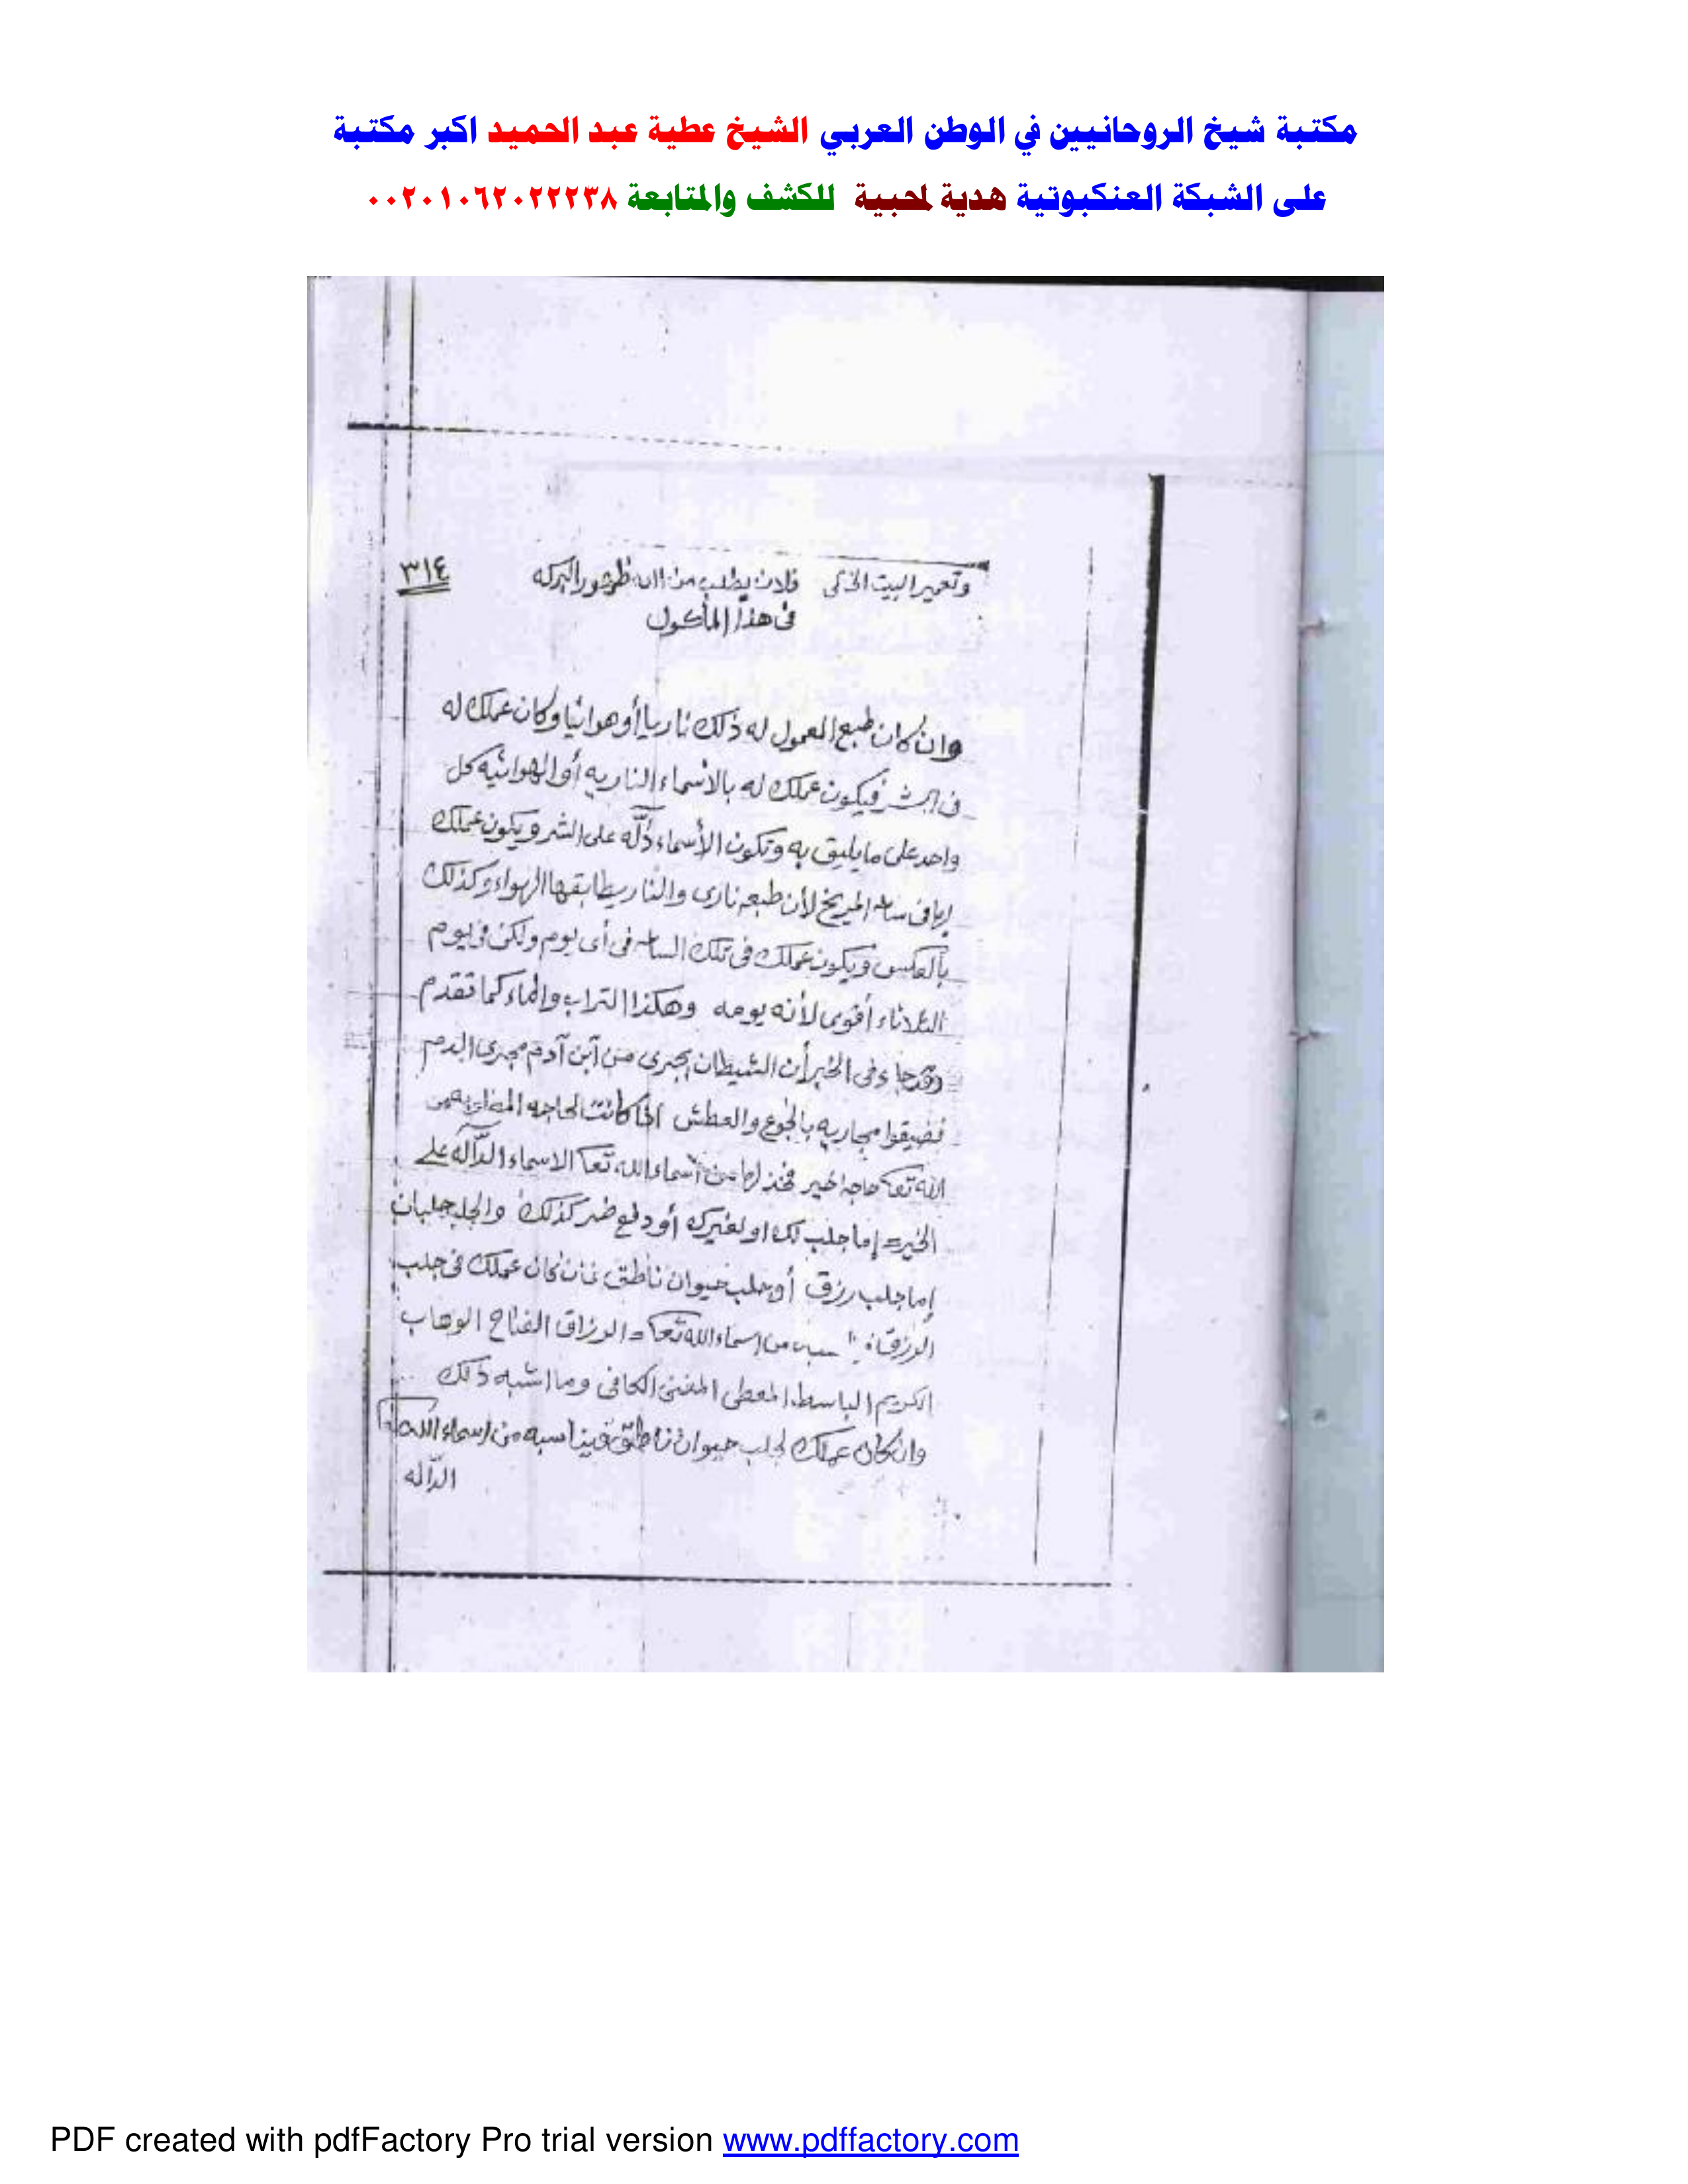 مكتبة شيخ الروحانيين في الوطن العربي الشيخ عطية عبد الحميد اكبر مكتبة
على الشبكة العنكبوتية هدية لمحبية للكشف والمتابعة ٠٠٢٠١٠٦٢٠٢٢٢٣٨
وتعمير البيت فلان يطلب من الله ظهور البركه ٣١٤
فى هذا المأكول
وان كان طبع المعمول له ذلك ناريا أو هوائيا وكان عملك له
فى الشر فيكون عملك له بالأسماء الناريه أو الهوائيه كل
واحد على ما يليق به وتكون الأسماء دآلّه على الشر ويكون عملك
المريخ لأن طبعه نارى والنار يطابقها الهواء وكذلك
بالعكس ويكون عملك فى تلك الساعه فى أى يوم ولكن فى يوم
الثلاثاء أقوى لأنه يومه وهكذا التراب والماء كما تقدم
وقد جاء فى الخبر أن الشيطان يجرى من آبن آدم مجرى الدم
فضيقوا مجاريه بالجوع والعطش كانت الحاجه من
الله تعا حاجه خير فخذ لها من أسماء الله تعا الاسماء الدّآله على
الخير = إما جلب لك او لغيرك أو دفع ضر كذلك والجلب جلبان
إما جلب رزق أو جلب حيوان ناطق فان كان عملك فى جلب
الرزق من اسماء الله تعا = الرزاق الفتاح الوهاب
الكريم الباسط المعطى المغنى الكافى وما اشبه ذلك
وان كان عملك لجلب حيوان ناطق فيناسبه من اسماء الله تعا
الدّاله
PDF created with pdfFactory Pro trial version www.pdffactory.com